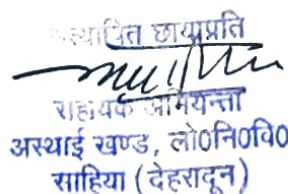 सत्यापित छायाप्रति
सहायक अभियन्ता
अस्थाई खण्ड, लो0नि0वि0
साहिया (देहरादून)